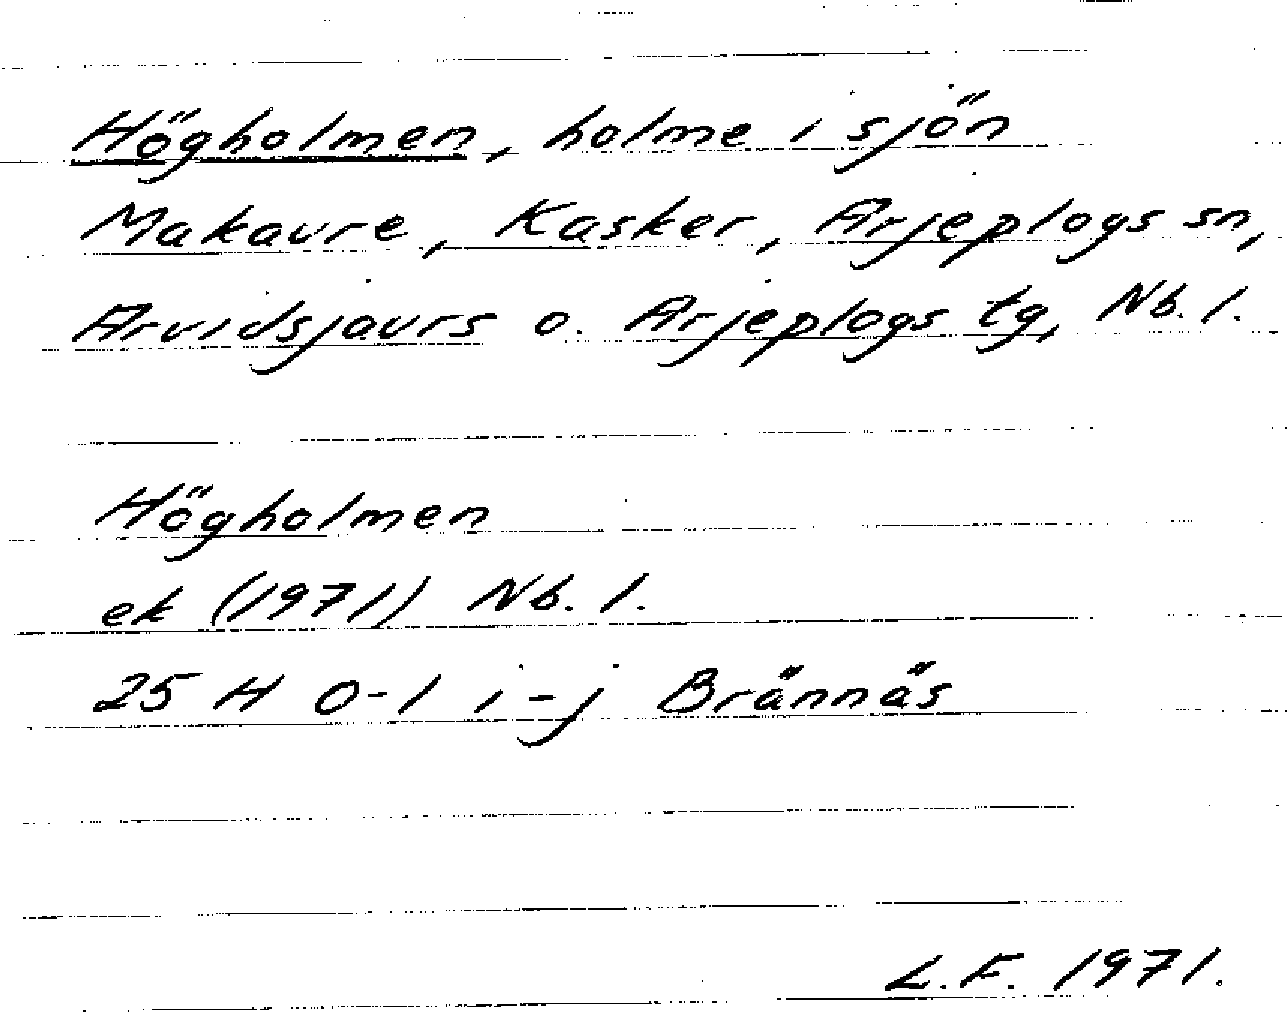 Högholmen, holme i sjön
Makaure, Kasker, Arjeplogs sn,
Arvidsjaurs o. Arjeplogs tg, Nb. l.
Högholmen
ek (1971) Nb. l.
25 H 0-1 i-j Brännäs
L.F. 1971.